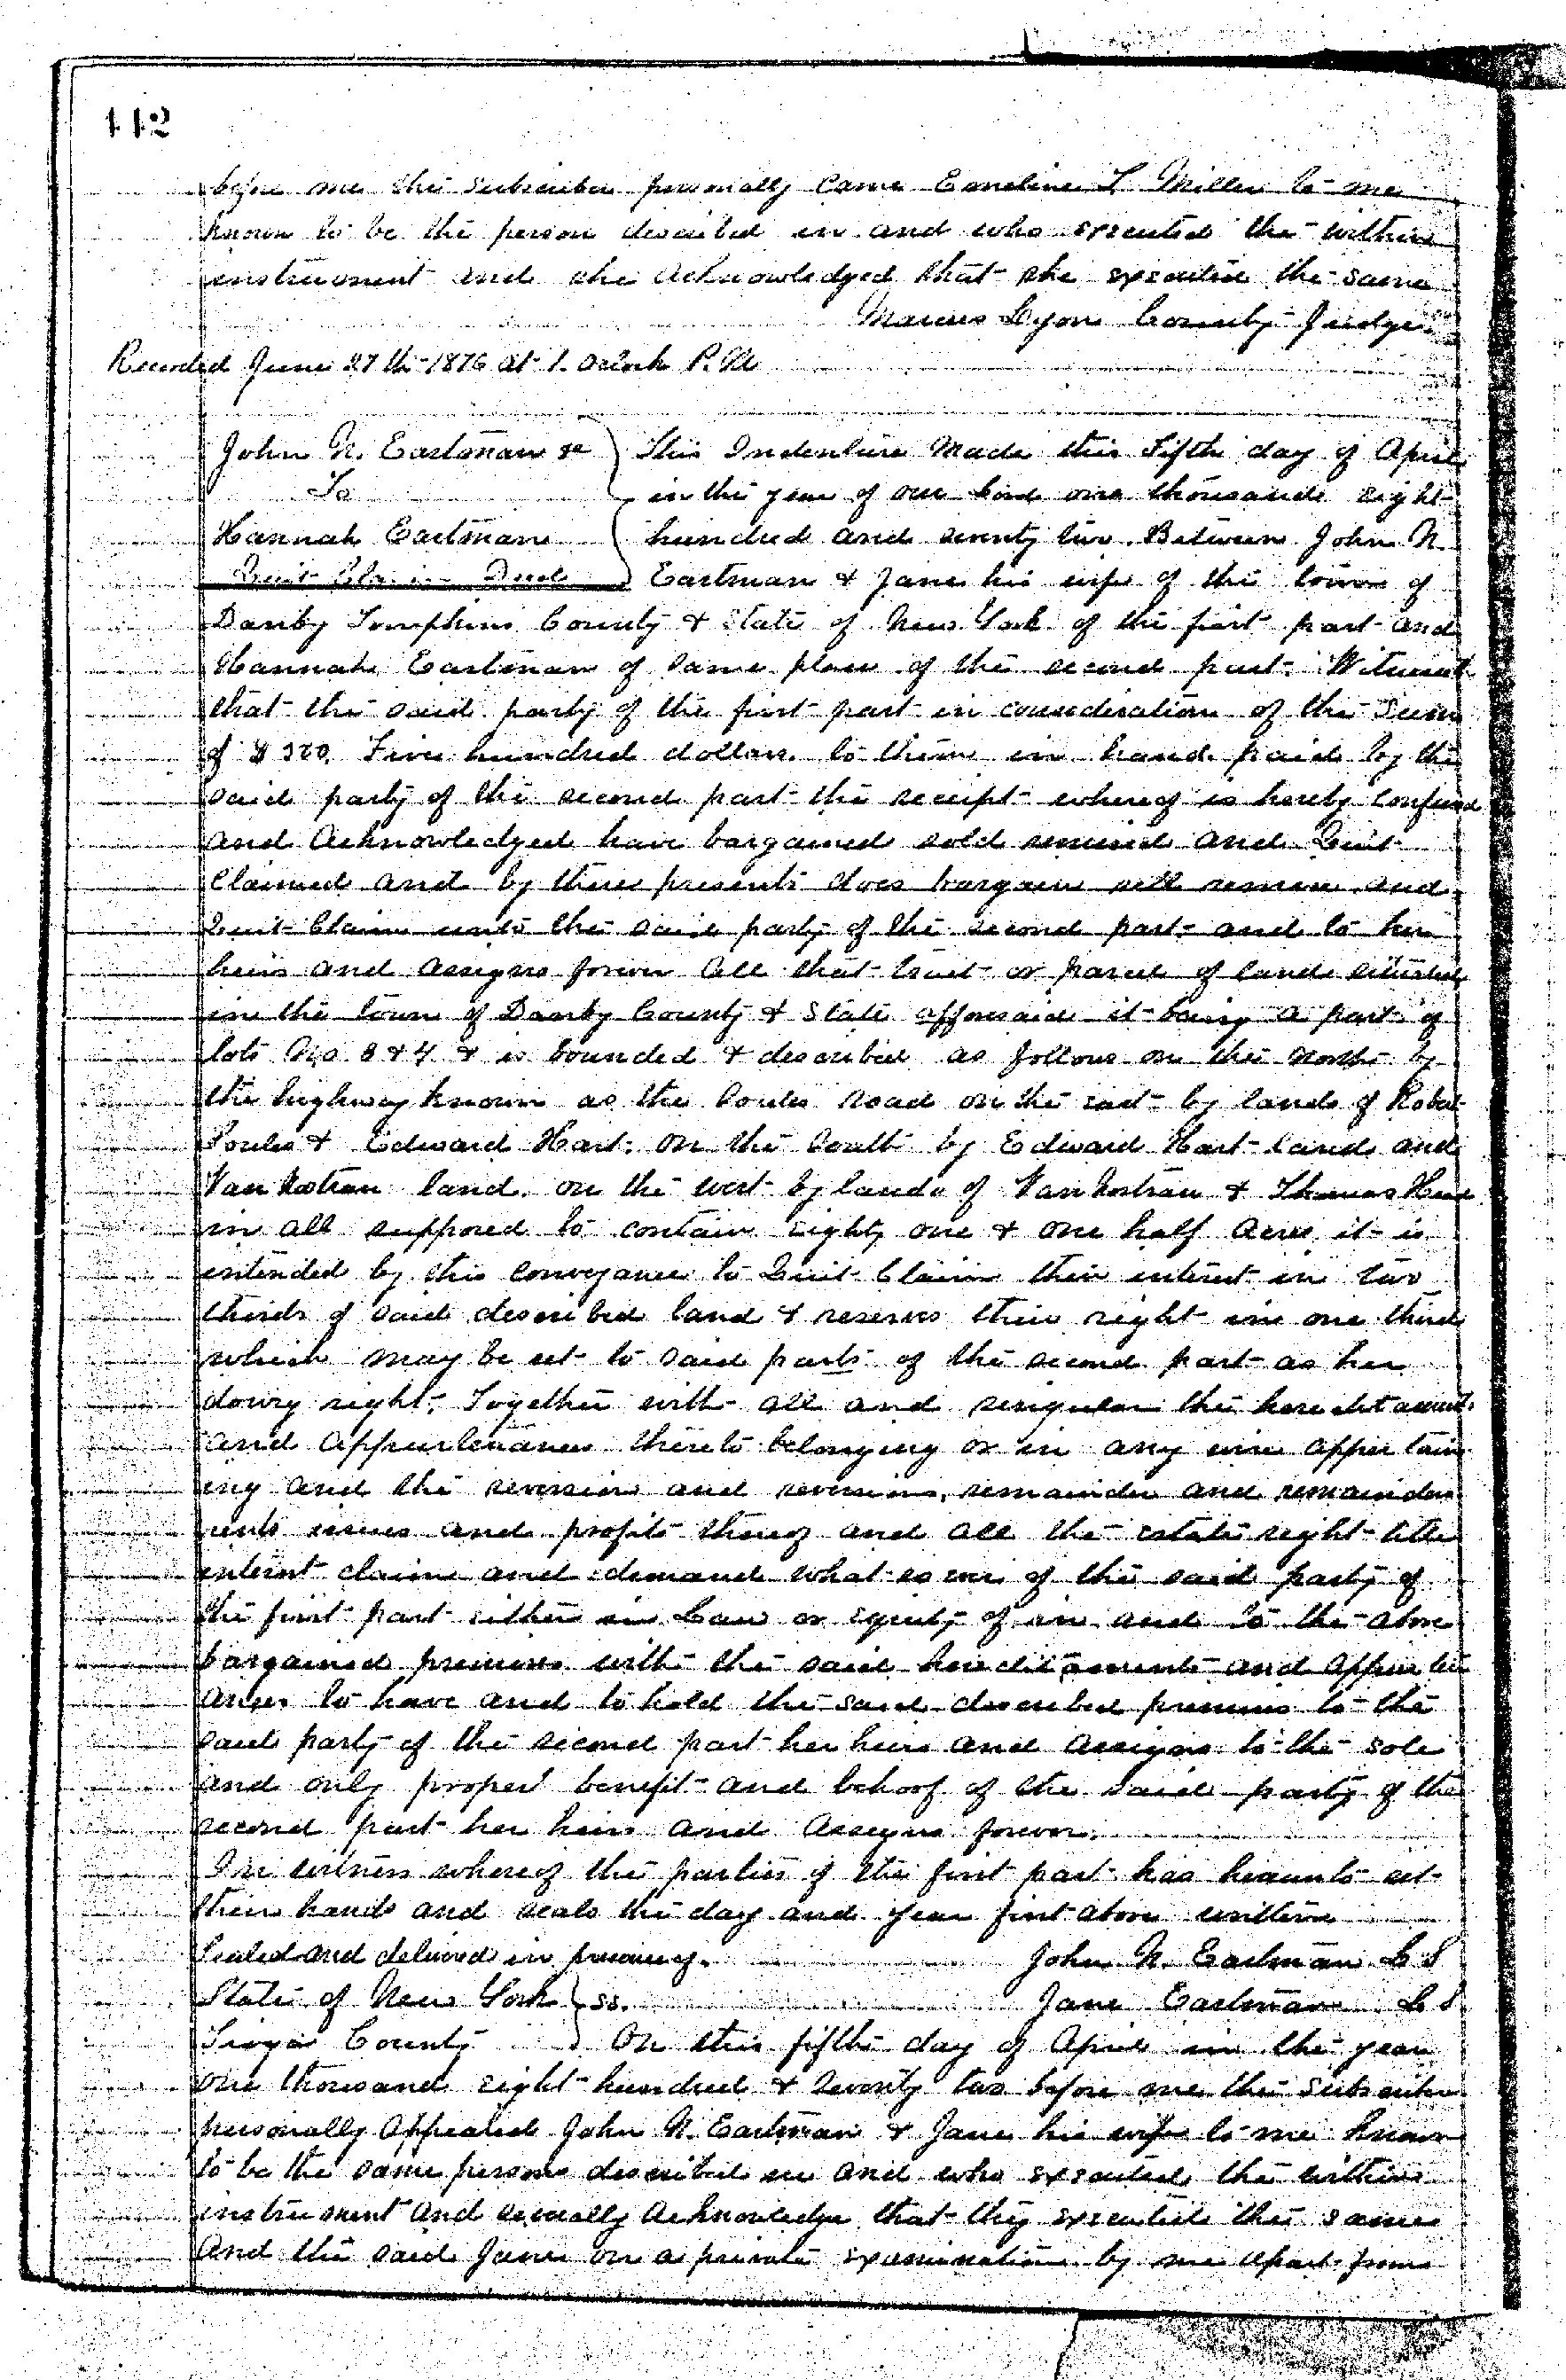 112
before me the subscriber personally came Emeline L Miller to me
known to be the person described in and who executed the within
instrument and she acknowledged that she executed the same
Marcus Lyon County Judge
Recorded June 27th 1876 at 1. oclock P.M
John N. Eastman &c
To
Hannah Eastman
Quit Claim Deed
This Indenture Made this Fifth day of April
in the year of our Lord one thousand eight
hundred and seventy two. Between John N.
Eastman & Jane his wife of the town of
Danby Tompkins County & State of New York of the first part and
Hannah Eastman of same place of the second part. Witnesseth
that the said party of the first part in consideration of the Sum
of $500. Five hundred dollars. to them in hand paid by the
said party of the second part the receipt whereof is hereby confessed
and Acknowledged have bargained sold remised and Quit
Claimed and by these presents does bargain sell remise and
Quit Claim unto the said party of the second part and to her
heirs and Assigns forever All that tract or parcel of land situated
in the town of Danby County & State afforesaid it being a part of
lots No. 3 & 4 & is bounded & described as follows on the North by
the highway known as the Soules road on the east by lands of Robert
Soules & Edward Hart. On the South by Edward Hart land and
Van Nostran land. on the west by lands of Van Nostran & Thomas
in all supposed to contain eighty one & one half Acres. it is
intended by this conveyance to Quit Claim their interest in two
thirds of said described land & reserves their right in one third
which may be set to said party of the second part as her
dowry right. Together with all and singular the hereditaments
and Appurtenances thereto belonging or in any wise appertain
ing and the reversion and reversions, remainder and remainders
rents issues and profits thereof and all the estate right title
interest claim and demand what so ever of the said party of
the first part either in Law or equity of in and to the above
bargained premises with the said hereditaments and appurten
ances to have and to hold the said described premises to the
said party of the second part her heirs and Assigns to the sole
and only proper benefit and behoof of the said party of the
second part her heirs and Assigns forever.
In witness whereof the parties of the first part has hereunto set
their hands and seals the day and year first above written
Sealed and delivered in presency. John N. Eastman L S
State of New York ss. Jane Eastman L S
Tioga County On this fifth day of April in the year
one thousand eight hundred & seventy two before me the subscriber
personally Appeared John N. Eastman & Jane his wife to me known
to be the same persons described in and who executed the within
instrument and severally Acknowledge that they executed the same
And the said Jane on a private examination by me apart from